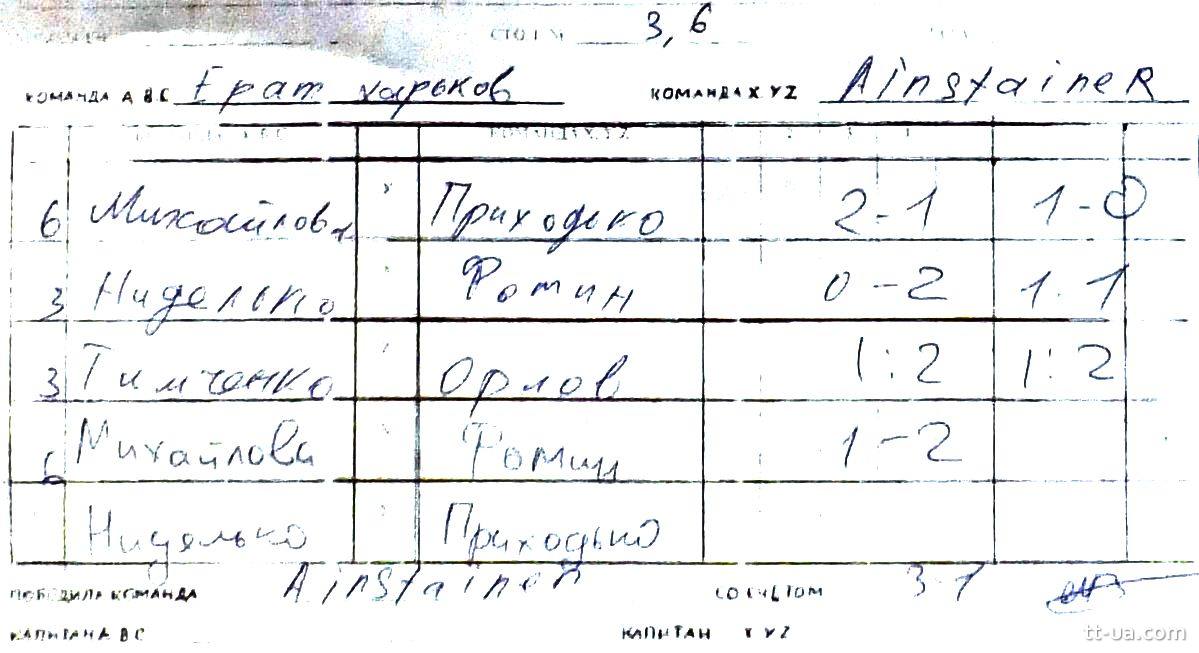 3, 6
КОМАНДА А В С Ерат харьков КОМАНДА X YZ AinstaineR
КОМАНДА X, Y, Z
6 Михайлова x Приходько 2-1 1-0
3 Ниделько Фотин 0-2 1.1
3 Тимченко Орлов 1:2 1:2
6 Михайлова Фотин 1-2
Ниделько Приходько
ПОБЕДИЛА КОМАНДА AinstaineR СО СЧЕТОМ 3-1
КАПИТАН А В С КАПИТАН X Y Z
tt-ua.com